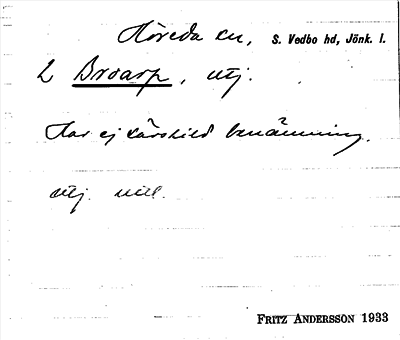 Höreda sn, S. Vedbo hd, Jönk. l.
L Broarp, utj.
Har ej särskild benämning.
utj. till.
FRITZ ANDERSSON 1933